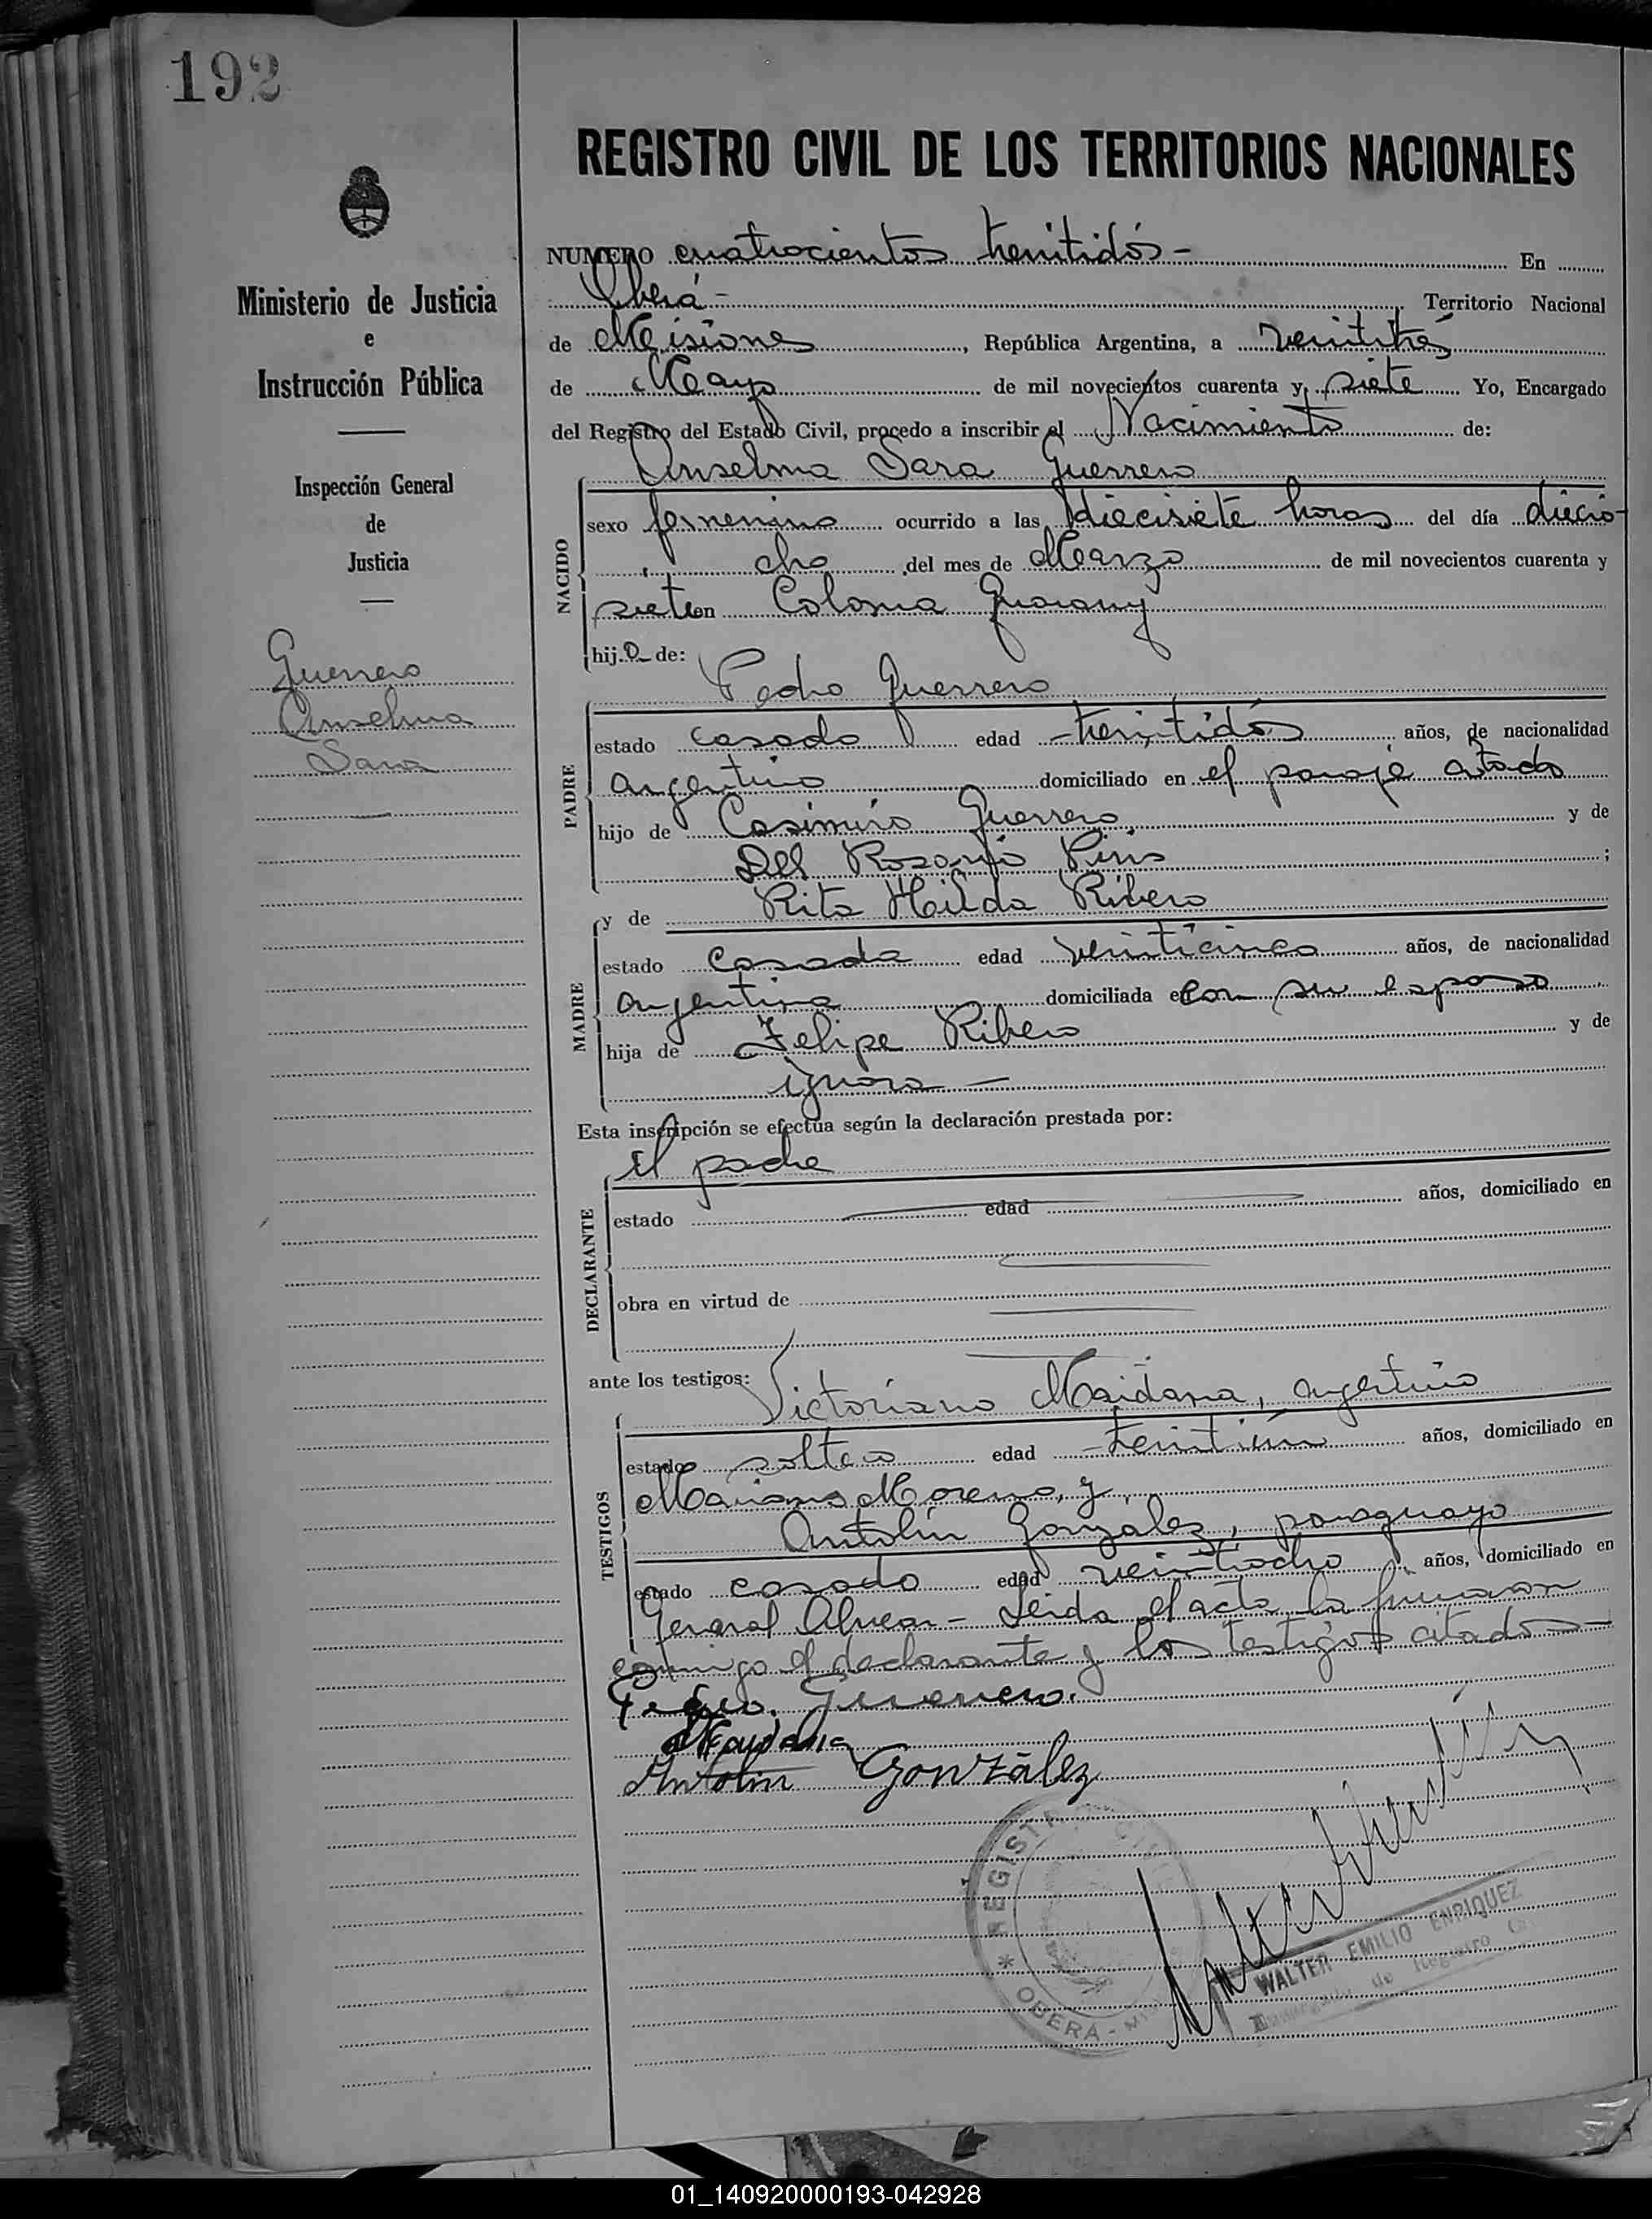 192
REGISTRO CIVIL DE LOS TERRITORIOS NACIONALES
Ministerio de Justicia
e
Instrucción Pública
Inspección General
de
Justicia
Guerrero
Anselma
Sara
NUMERO cuatrocientos treintidós - En
Oberá - Territorio Nacional
de Misiones, República Argentina, a veintitrés
de Mayo de mil novecientos cuarenta y siete Yo, Encargado
del Registro del Estado Civil, procedo a inscribir el Nacimiento de:
Anselma Sara Guerrero
NACIDO
sexo femenino ocurrido a las diecisiete horas del día diecio-
cho del mes de Marzo de mil novecientos cuarenta y
siete en Colonia Guarany
hija de:
Pedro Guerrero
PADRE
estado casado edad treintidós años, de nacionalidad
argentino domiciliado en el paraje citado
hijo de Casimiro Guerrero y de
Del Rosario ;
y de Rita Hilda Ribero
MADRE
estado casada edad veinticinco años, de nacionalidad
argentina domiciliada en con su esposo
hija de Felipe Ribero y de
ignora -
Esta inscripción se efectúa según la declaración prestada por:
El padre
DECLARANTE
estado edad años, domiciliado en
obra en virtud de
ante los testigos:
Victoriano Maidana, argentino
TESTIGOS
estado soltero edad treintiún años, domiciliado en
Mariano Moreno, y
Antolín González, paraguayo
estado casado edad veintiocho años, domiciliado en
General Alvear - Leida el acta, la firman
conmigo el declarante y los testigos citados -
Pedro Guerrero.
Maidana
Antolin González
REGISTRO CIVIL
OBERA -
WALTER EMILIO ENRIQUEZ
Encargado de Registro
01_140920000193-042928